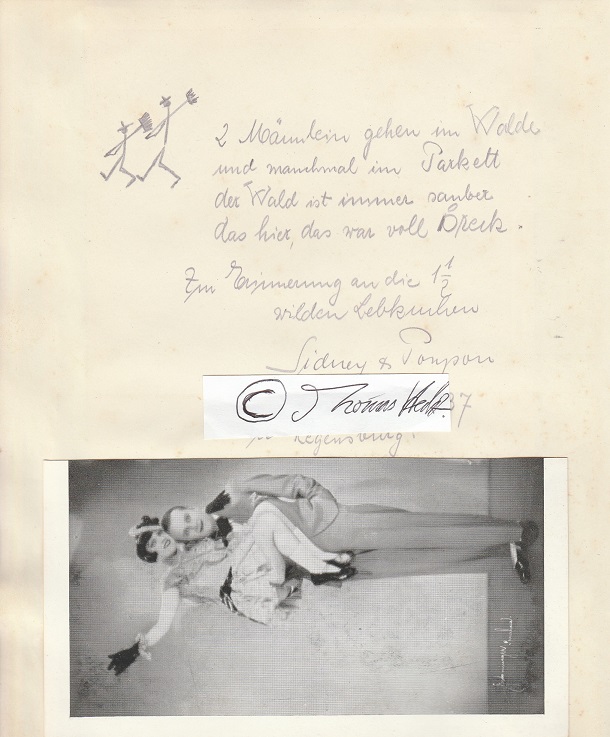 2 Männlein gehen im Walde
und manchmal im Parkett
der Wald ist immer sauber
das hier, das war voll Dreck.
Zur Erinnerung an die 1 1/2
wilden Lebkuchen
Sidney & Pompon
© Thomas
37
Regensburg.